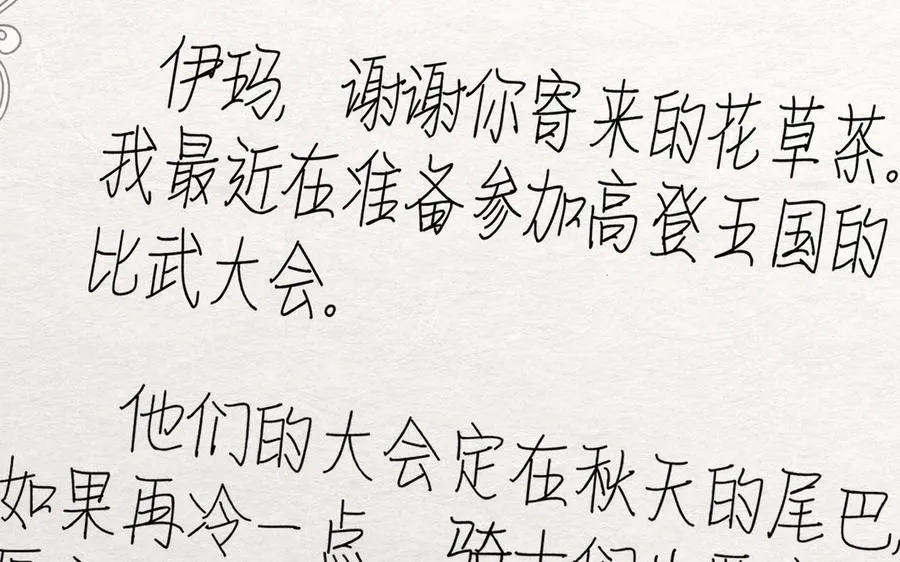 伊玛，谢谢你寄来的花草茶。
我最近在准备参加高登王国的
比武大会。
他们的大会定在秋天的尾巴，
如果再冷一点，骑士们